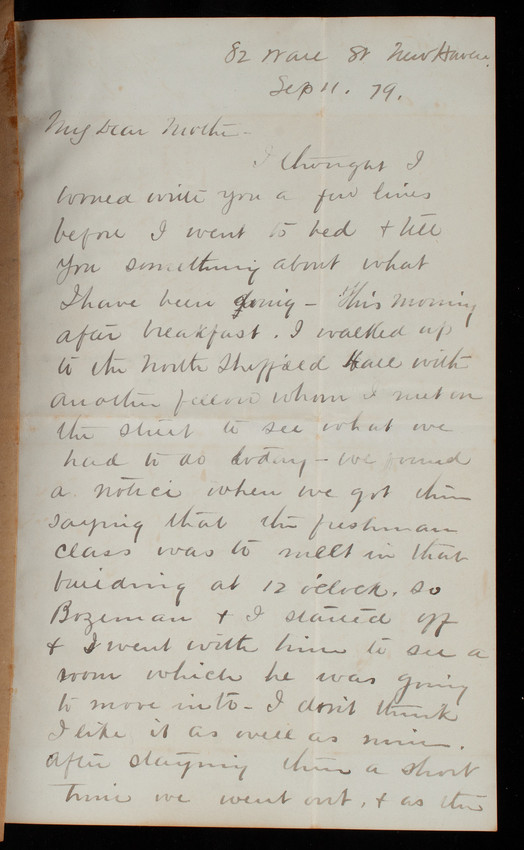 82 Wall St New Haven.
Sep 11. 79.
My Dear Mother -
I thought I
would write you a few lines
before I went to bed & tell
you something about what
I have been doing - This morning
after breakfast. I walked up
to the North Sheffield Hall with
another fellow whom I met on
the street to see what we
had to do today - we found
a notice when we got there
saying that the freshman
class was to meet in that
building at 12 o'clock. So
Bozeman & I started off
& I went with him to see a
room which he was going
to move into - I don't think
I like it as well as mine.
After staying there a short
time we went out, & as the